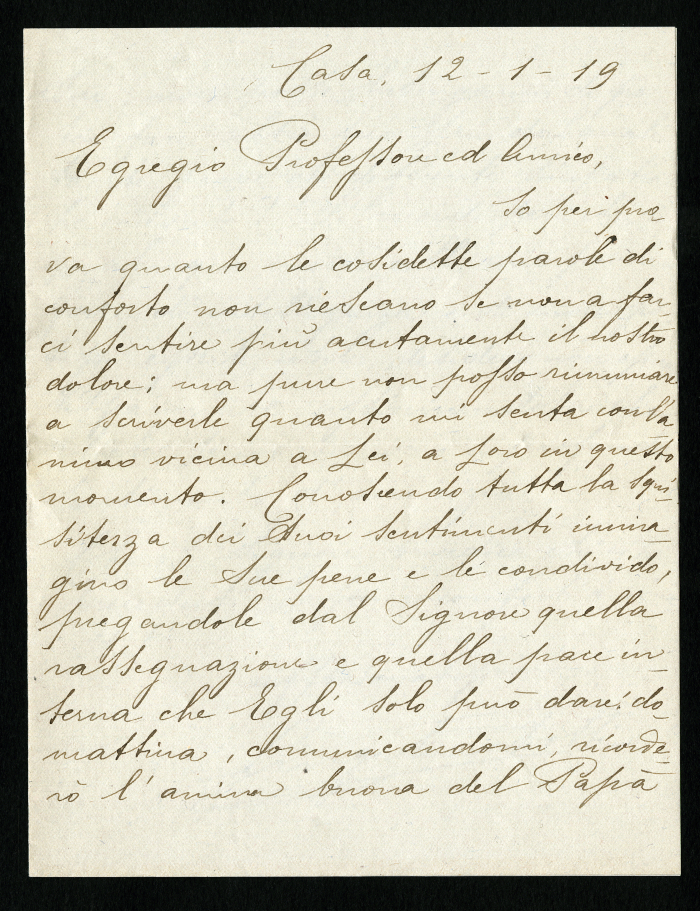 Casa, 12-1-19
Egregio Professore ed Amico,
So per pro-
va quanto le cosidette parole di
conforto non riescano se non a far-
ci sentire più acutamente il nostro
dolore; ma pure non posso rinunciare
a scriverle quanto mi senta coll'a
nimo vicina a Lei, a Loro in questo
momento. Conoscendo tutta la squi-
sitezza dei Suoi sentimenti imma-
gino le Sue pene e le condivido,
pregandole dal Signore quella
rassegnazione e quella pace in-
terna che Egli solo può dare: do-
mattina, comunicandomi, ricorde-
rò l'anima buona del Papà